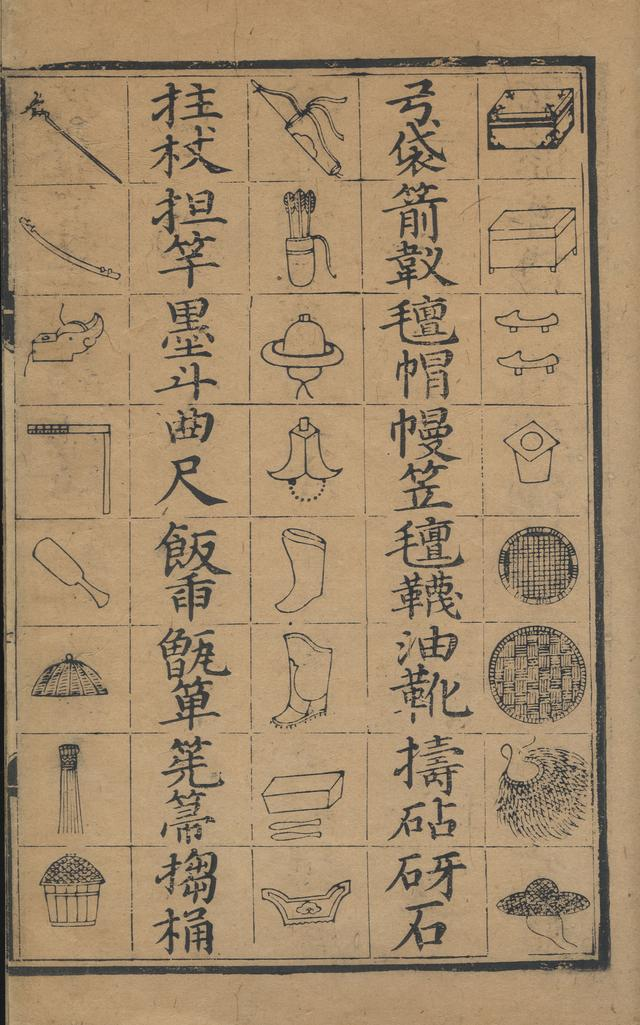 弓袋箭氈帽幔笠氈韈油靴擣砧砑石
拄杖担竿墨斗曲尺飯臿甑箄筅箒搊桶